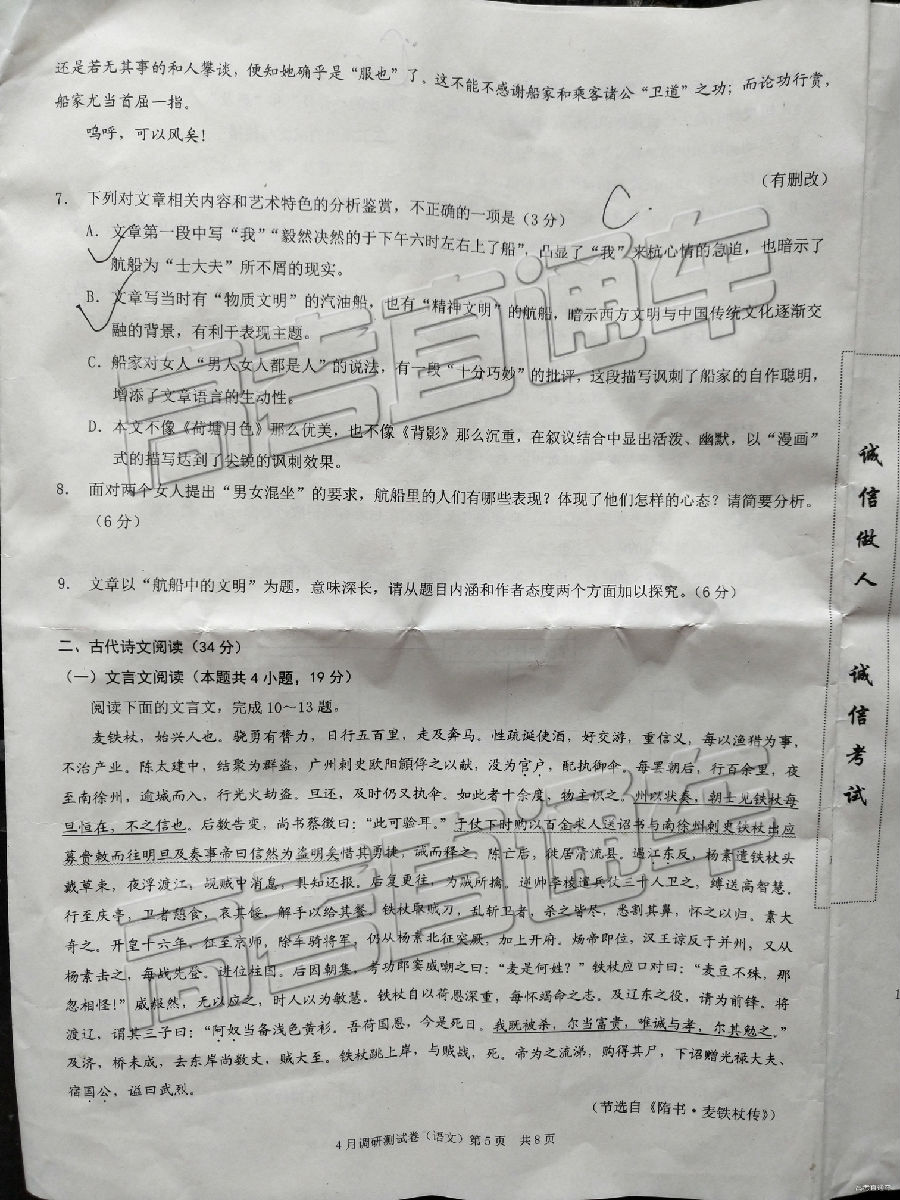 还是若无其事的和人攀谈，便知她确乎是“服也”了、这不能不感谢船家和乘客诸公“卫道”之功；而论功行赏，
船家尤当首屈一指。
呜呼，可以风矣！
（有删改）
7. 下列对文章相关内容和艺术特色的分析鉴赏，不正确的一项是（3分） C.
A. 文章第一段中写“我”“毅然决然的于下午六时左右上了船”，凸显了“我”来杭心情的急迫，也暗示了
航船为“士大夫”所不屑的现实。
B. 文章写当时有“物质文明”的汽油船，也有“精神文明”的航船，暗示西方文明与中国传统文化逐渐交
融的背景，有利于表现主题。
C. 船家对女人“男人女人都是人”的说法，有一段“十分巧妙”的批评，这段描写讽刺了船家的自作聪明，
增添了文章语言的生动性。
D. 本文不像《荷塘月色》那么优美，也不像《背影》那么沉重，在叙议结合中显出活泼、幽默，以“漫画”
式的描写达到了尖锐的讽刺效果。
8. 面对两个女人提出“男女混坐”的要求，航船里的人们有哪些表现？体现了他们怎样的心态？请简要分析。
（6分）
9. 文章以“航船中的文明”为题，意味深长，请从题目内涵和作者态度两个方面加以探究。（6分）
二、古代诗文阅读（34分）
（一）文言文阅读（本题共4小题，19分）
阅读下面的文言文，完成10～13题。
麦铁杖，始兴人也。骁勇有膂力，日行五百里，走及奔马。性疏诞使酒，好交游，重信义，每以渔猎为事，
不治产业。陈太建中，结聚为群盗，广州刺史欧阳頠俘之以献，没为官户，配执御伞。每罢朝后，行百余里，夜
至南徐州，逾城而入，行光火劫盗。旦还，及时仍又执伞。如此者十余度，物主识之。州以状奏，朝士见铁杖每
旦恒在，不之信也。后数告变，尚书蔡徵曰：“此可验耳。”于仗下时购以百金求人送诏书与南徐州刺史铁杖出应
募赍敕而往明旦及奏事帝曰信然为盗明矣惜其勇捷，诫而释之。陈亡后，徙居清流县。遇江东反，杨素遣铁杖头
戴草束，夜浮渡江，觇贼中消息，具知还报。后复更往，为贼所擒。逆帅李棱遣兵仗三十人卫之，缚送高智慧。
行至庆亭，卫者憩食，哀其馁，解手以给其餐。铁杖取贼刀，乱斩卫者，杀之皆尽，悉割其鼻，怀之以归。素大
奇之。开皇十六年，征至京师，除车骑将军，仍从杨素北征突厥，加上开府。炀帝即位，汉王谅反于并州，又从
杨素击之，每战先登。进位柱国。后因朝集，考功郎窦威嘲之曰：“麦是何姓？”铁杖应口对曰：“麦豆不殊，那
忽相怪！”威赧然，无以应之，时人以为敏慧。铁杖自以荷恩深重，每怀竭命之志。及辽东之役，请为前锋。将
渡辽，谓其三子曰：“阿奴当备浅色黄衫。吾荷国恩，今是死日。我既被杀，尔当富贵，唯诚与孝，尔其勉之。”
及济，桥未成，去东岸尚数丈，贼大至。铁杖跳上岸，与贼战，死。帝为之流涕，购得其尸，下诏赠光禄大夫、
宿国公，谥曰武烈。
（节选自《隋书·麦铁杖传》）
4月调研测试卷（语文）第5页 共8页
诚信做人 诚信考试
高考直通车
高考直通车